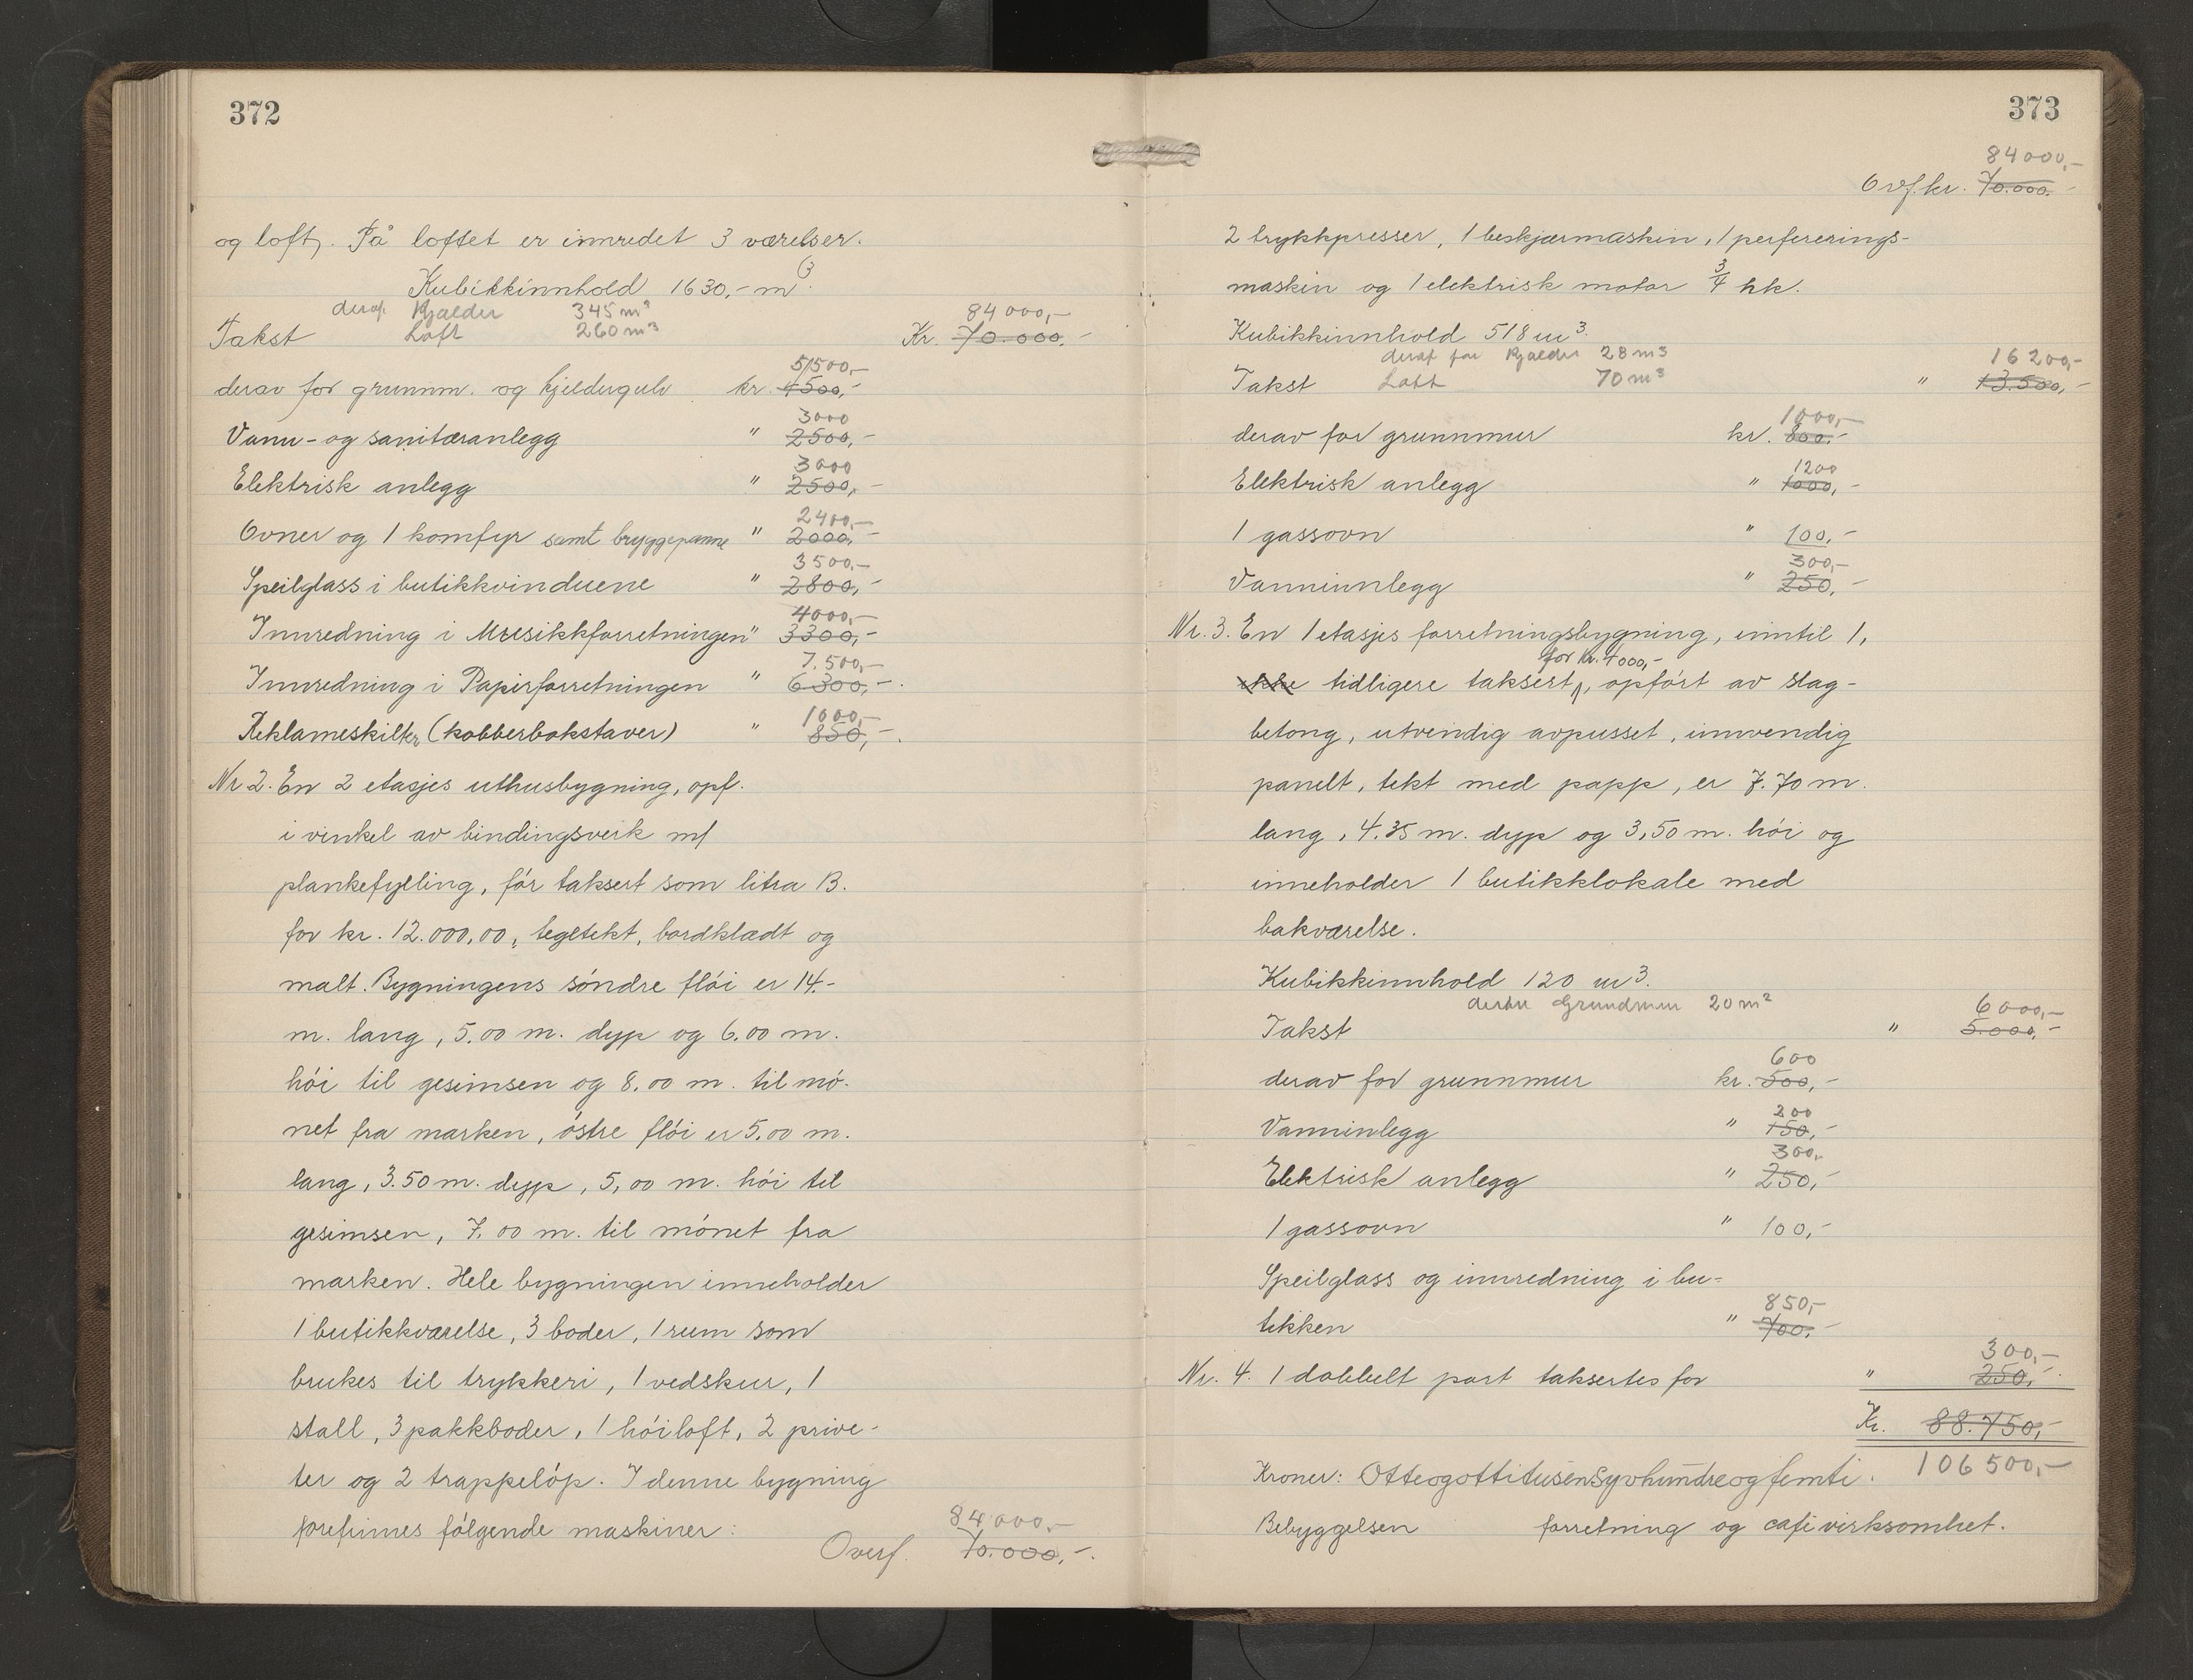 372
og loft. På loftet er innredet 3 værelser.
Kubikkinnhold 1630,- m3.
derav Kjælder 345 m3
84000,-
Takst Loft 260 m3 Kr. 70.000,-
5500,-
derav for grunnm. og kjeldergulv kr. 4500,-
3000
Vann- og sanitæranlegg " 2500,-
3000
Elektrisk anlegg " 2500,-
2400,-
Ovner og 1 komfyr samt bryggepanne " 2000,-
3500,-
Speilglass i butikkvinduene " 2800,-
4000,-
Innredning i Musikkforretningen " 3300,-
7.500,-
Innredning i Papirforretningen " 6300,-.
1000,-
Reklameskilter (kobberbokstaver) " 850,-.
Nr 2. En 2 etasjes uthusbygning, opf.
i vinkel av bindingsverk m/
plankefylling, før taksert som litra B.
for kr. 12.000,00, tegltekt, bordklædt og
malt. Bygningens søndre fløi er 14.-
m. lang, 5.00 m. dyp og 6.00 m.
høi til gesimsen og 8.00 m. til mø-
net fra marken, østre fløi er 5.00 m.
lang, 3.50 m. dyp, 5,00 m. høi til
gesimsen, 7.00 m. til mønet fra
marken. Hele bygningen inneholder
1 butikkværelse, 3 boder, 1 rum som
brukes til trykkeri, 1 vedskur, 1
stall, 3 pakkboder, 1 høiloft, 2 prive-
ter og 2 trappeløp. I denne bygning
forefinnes følgende maskiner:
84000,-
Overf. 70.000,-.
373
84000,-
Ovf. kr. 70.000,-
2 trykkpresser, 1 beskjærmaskin, 1 perfererings-
maskin og 1 elektrisk motor 3/4 hk.
Kubikkinnhold 518 m3.
deraf for Kjælder 28 m3
16200,-
Takst Loft 70 m3 " 13.500,-
1000,-
derav for grunnmur kr. 800,-
1200
Elektrisk anlegg " 1000,-
1 gassovn " 100,-
300,-
Vanninnlegg " 250,-
Nr. 3. En 1 etasjes forretningsbygning, inntil 1,
for kr. 4000,-
ikke tidligere taksert, opført av slag-
betong, utvendig avpusset, innvendig
panelt, tekt med papp, er 7.70 m.
lang, 4.35 m. dyp og 3,50 m. høi og
inneholder 1 butikklokale med
bakværelse.
Kubikkinnhold 120 m3.
Grundmur 20 m2
6000,-
Takst " 5.000,-
600
derav for grunnmur kr. 500,-
200
Vanninlegg " 150,-
300,-
Elektrisk anlegg " 250,-
1 gassovn " 100,-
Speilglass og innredning i bu-
850,-
tikken " 700,-
300,-
Nr. 4. 1 dobbelt port taksertes for " 250,-
Kr. 88.750,-
106500,-
Kroner: Otteogottitusensyvhundreogfemti.
Bebyggelsen forretning og cafevirksomhet.